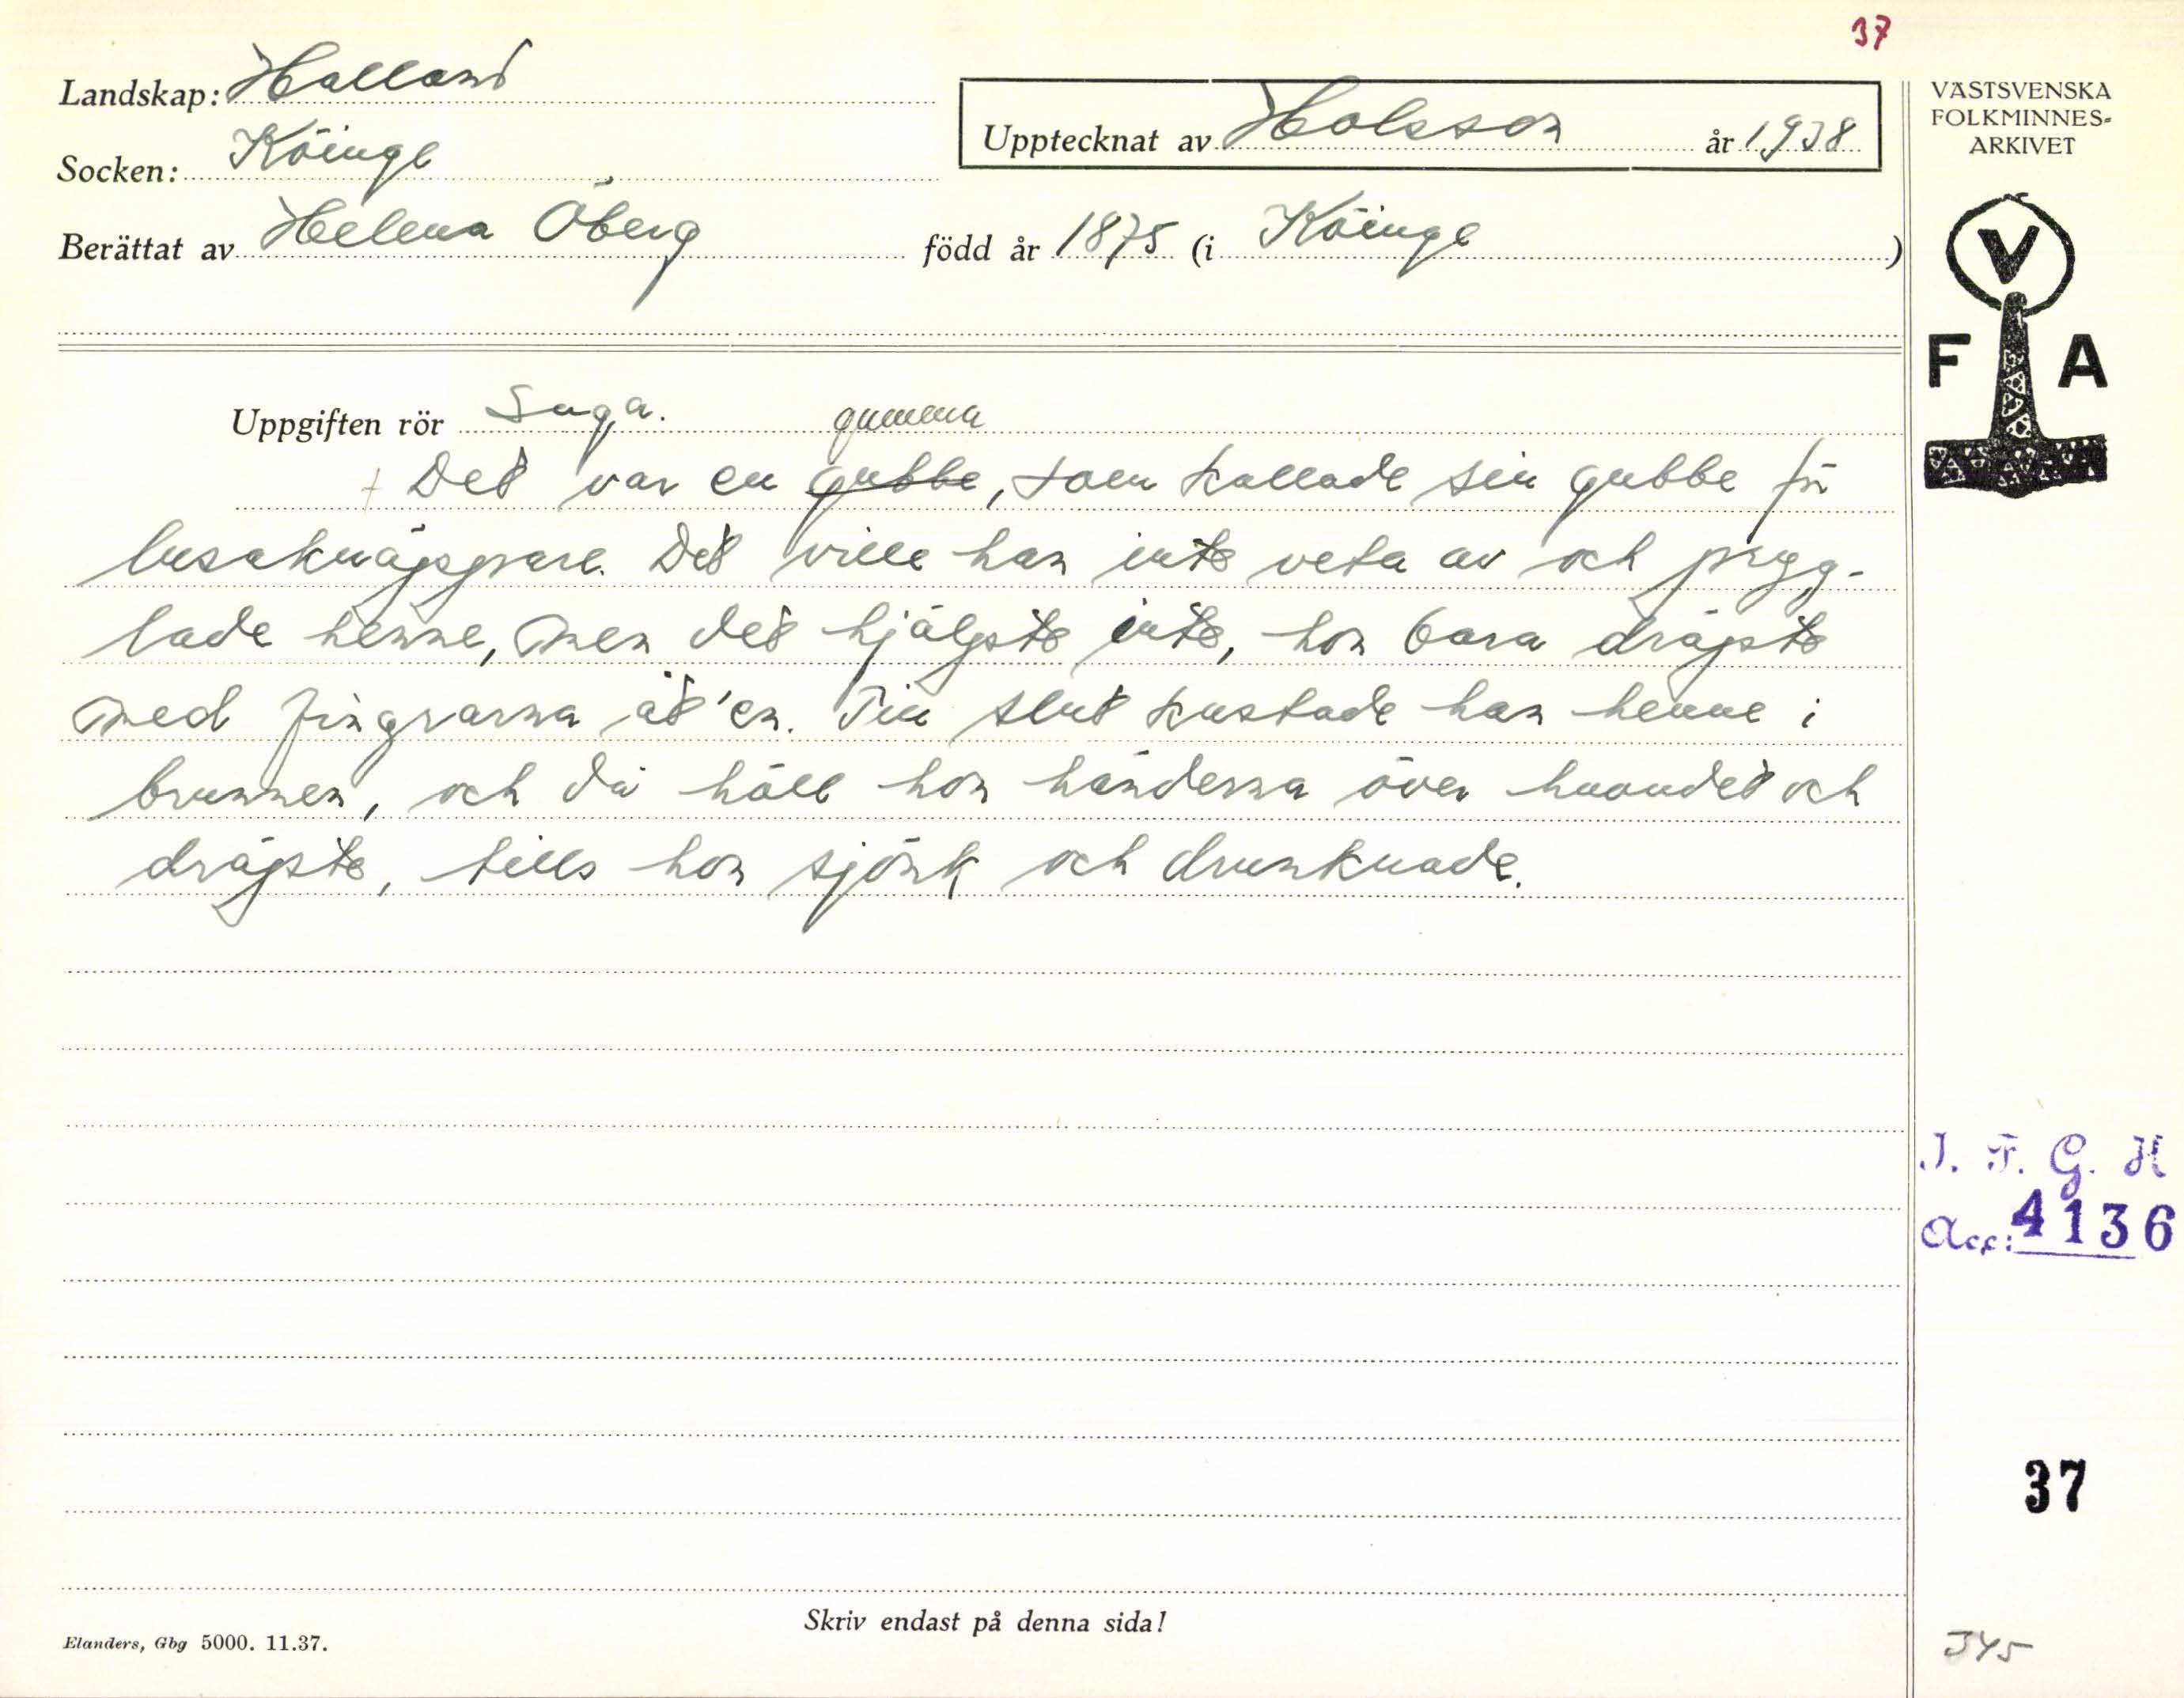 37
Landskap: Halland
Socken: Köinge
Berättat av Helena Öberg född år 1875 (i Köinge)
Upptecknat av Holsson år 1938
VÄSTSVENSKA
FOLKMINNES-
ARKIVET
V
F A
Uppgiften rör Saga.
gumma
+ Det var en gubbe, som kallade sin gubbe för
lusaknäppare. Det ville han inte veta av och prygg-
lade henne, men det hjälpte inte, hon bara dräpte
med fingrarna åt'en. Till slut kastade han henne i
brunnen, och då höll hon händerna över huvudet och
dräpte, tills hon sjönk och drunknade.
I. F. G. H
Acc: 4136
37
Skriv endast på denna sida!
Elanders, Gbg 5000. 11.37.